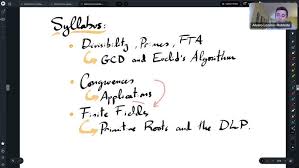 Syllabus:
• Divisibility, Primes, FTA
GCD and Euclid's Algorithm
• Congruences
Applications
• Finite Fields
Primitive Roots and the DLP.